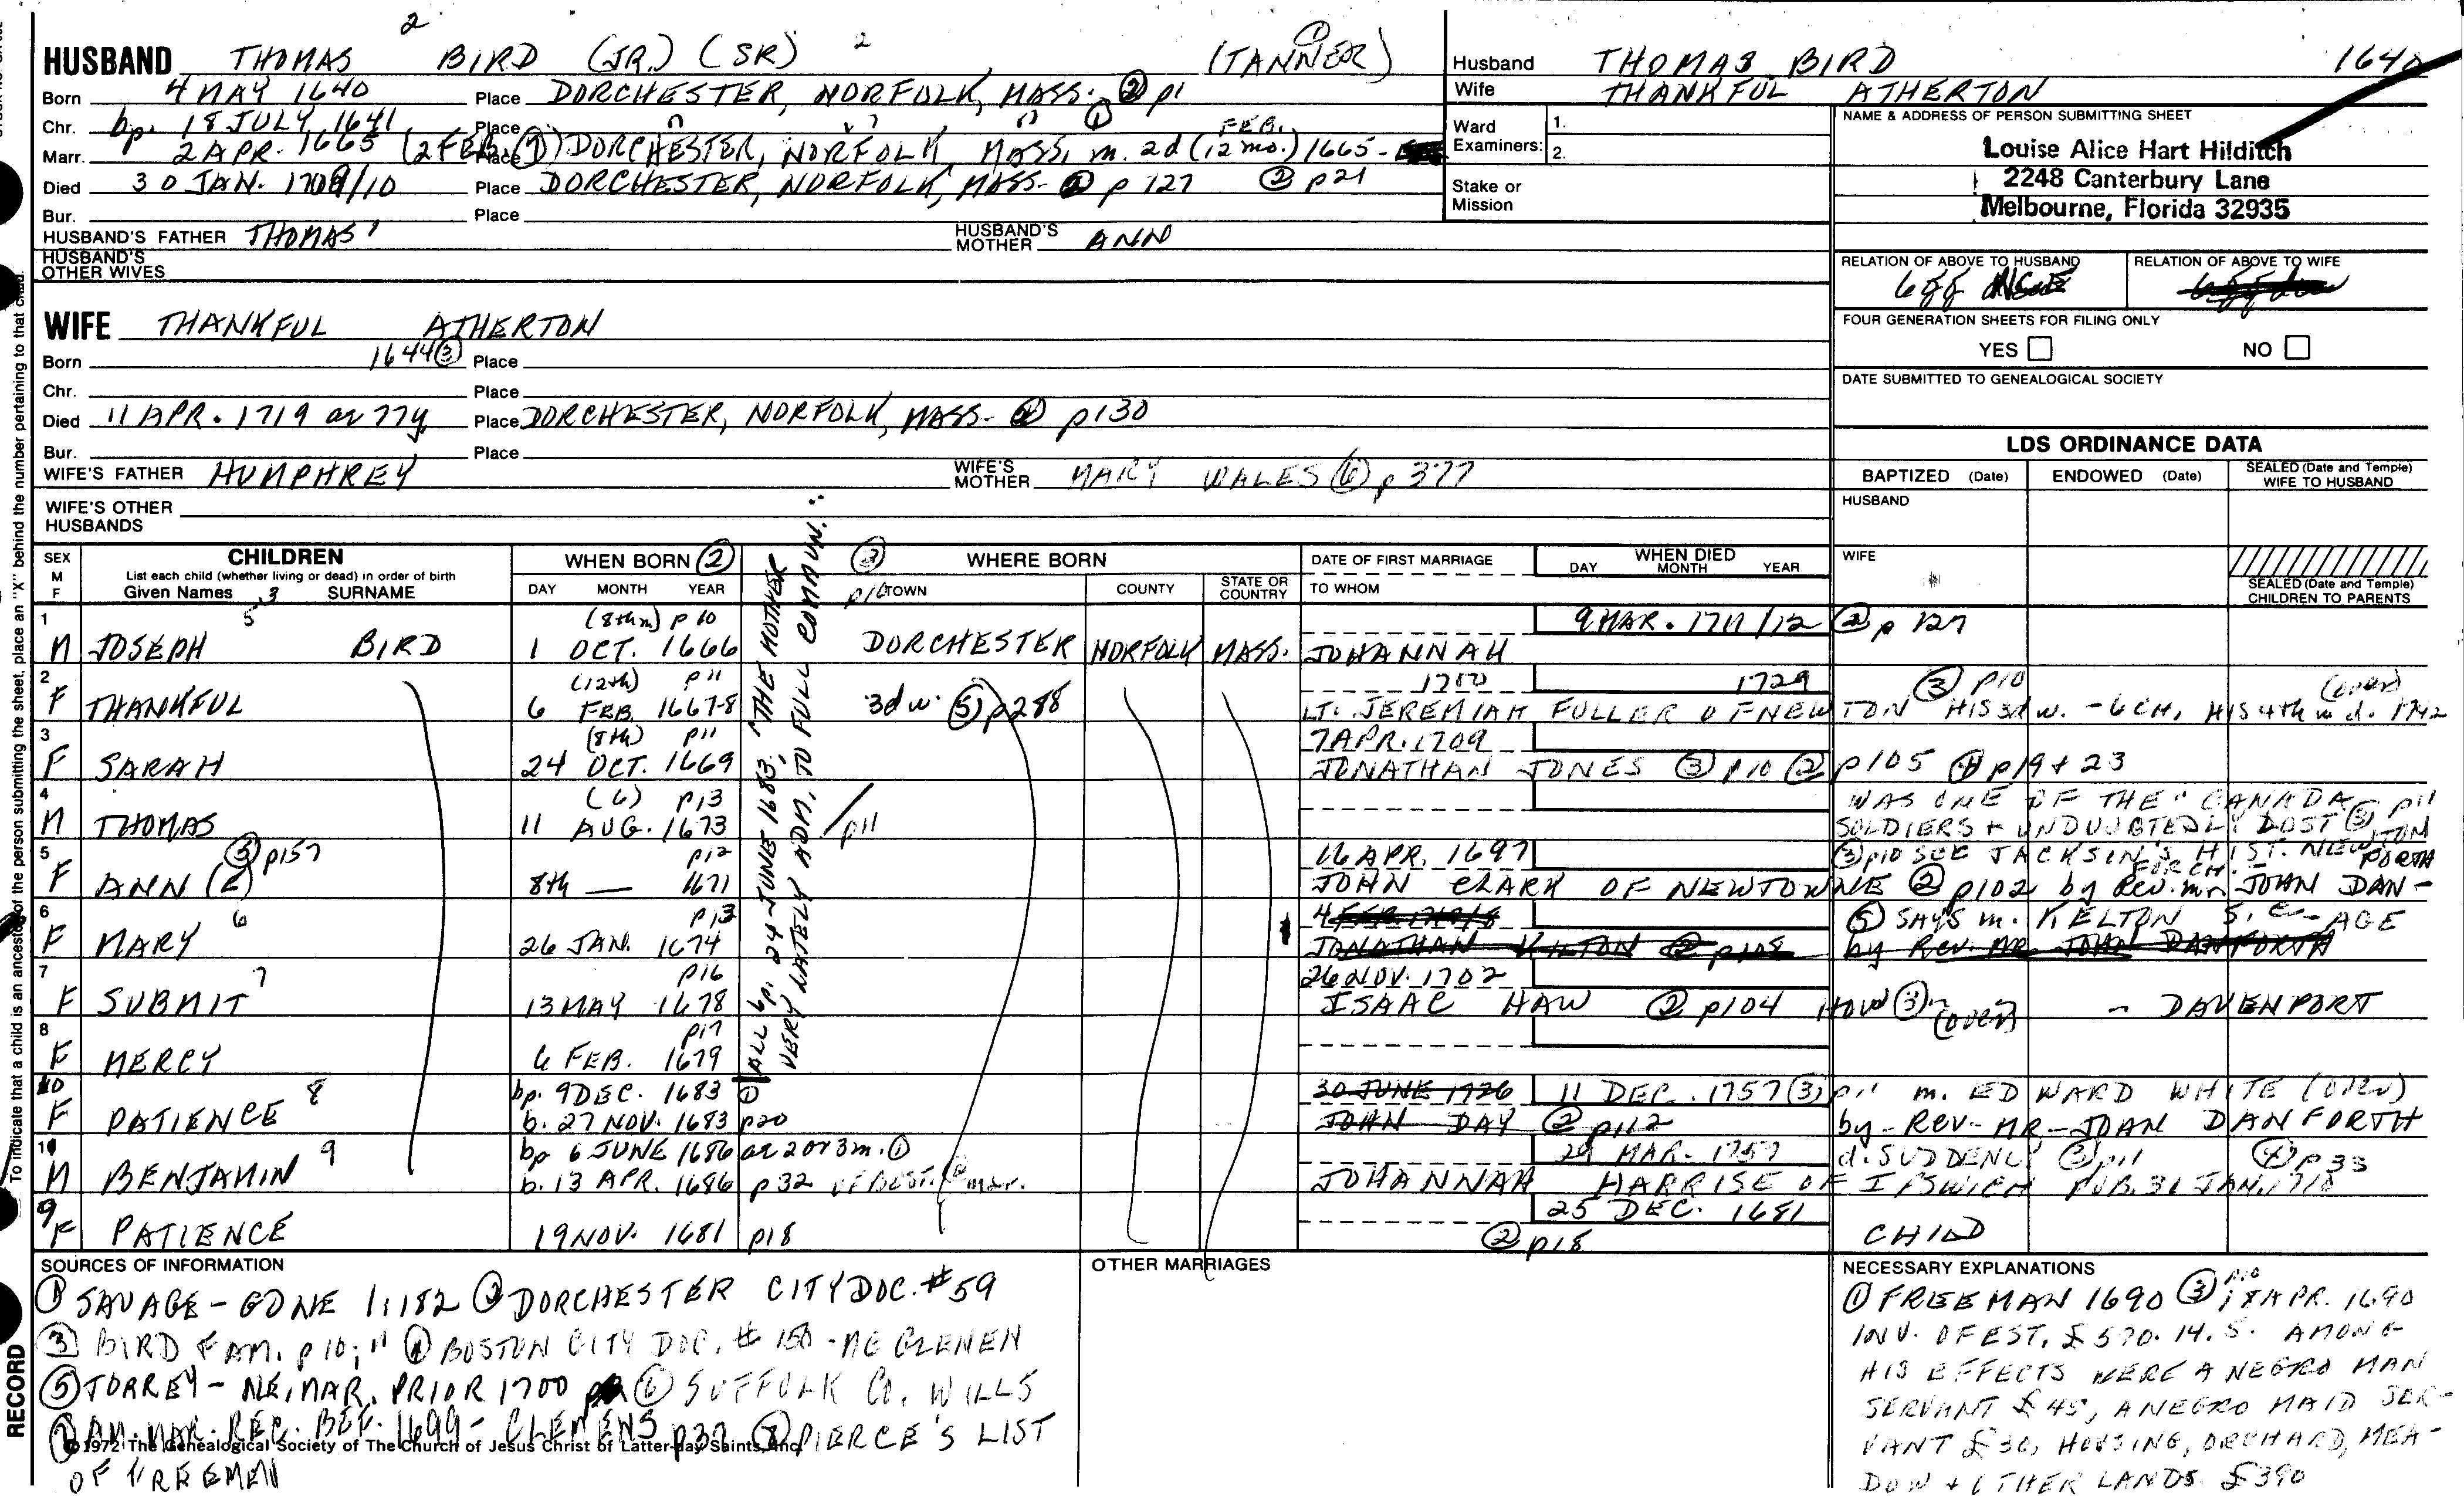 2 2 ①
HUSBAND THOMAS BIRD (JR.) (SR) (TANNER)
Born 4 MAY 1640 Place DORCHESTER, NORFOLK, MASS. ② p1
Chr. bp. 18 JULY 1641 Place " " " ①
Marr. 2 APR. 1665 (2 FEB. ①) Place DORCHESTER, NORFOLK, MASS, m. 2d (12 mo.) FEB. 1665-
Died 30 JAN. 1709/10 Place DORCHESTER, NORFOLK, MASS- ② p 127 ② p21
Bur. Place
HUSBAND'S FATHER THOMAS' HUSBAND'S MOTHER ANN
HUSBAND'S OTHER WIVES
WIFE THANKFUL ATHERTON
Born 1644 ③ Place
Chr. Place
Died 11 APR. 1719 ae 77y. Place DORCHESTER, NORFOLK, MASS- ② p130
Bur. Place
WIFE'S FATHER HUMPHREY WIFE'S MOTHER MARY WALES ⑥ p 377
WIFE'S OTHER HUSBANDS
Husband THOMAS BIRD 1640
Wife THANKFUL ATHERTON
Ward Examiners: 1. 2.
Stake or Mission
NAME & ADDRESS OF PERSON SUBMITTING SHEET
Louise Alice Hart Hilditch
2248 Canterbury Lane
Melbourne, Florida 32935
RELATION OF ABOVE TO HUSBAND RELATION OF ABOVE TO WIFE
FOUR GENERATION SHEETS FOR FILING ONLY
YES NO
DATE SUBMITTED TO GENEALOGICAL SOCIETY
LDS ORDINANCE DATA
BAPTIZED (Date) ENDOWED (Date) SEALED (Date and Temple) WIFE TO HUSBAND
HUSBAND
WIFE
SEALED (Date and Temple) CHILDREN TO PARENTS
SEX M F CHILDREN WHEN BORN ② ② WHERE BORN DATE OF FIRST MARRIAGE WHEN DIED
List each child (whether living or dead) in order of birth
Given Names 3 SURNAME DAY MONTH YEAR TOWN COUNTY STATE OR COUNTRY TO WHOM DAY MONTH YEAR
1 5 (8th m) p 10 9 MAR. 1711/12 ② p 127
M JOSEPH BIRD 1 OCT. 1666 DORCHESTER NORFOLK MASS. JOHANNAH
2 (12th) p11 1700 1729 ③ p10 (over)
F THANKFUL 6 FEB. 1667-8 3d w. ⑤ p288 LT. JEREMIAH FULLER OF NEWTON HIS 3d w. - 6 CH, HIS 4th w d. 1742
3 (8th) p11 7 APR. 1709
F SARAH 24 OCT. 1669 JONATHAN JONES ③ p 10 ② p105 ④ p19 + 23
4 (6) p13 WAS ONE OF THE "CANADA
M THOMAS 11 AUG. 1673 p11 SOLDIERS + UNDOUBTEDLY LOST ③ p11
5 ⑤ p157 p12 16 APR. 1697 ③ p10 SEE JACKSIN'S HIST. NEWTON
F ANN (E) 8th — 1671 JOHN CLARK OF NEWTOWNE ② p102 by Rev. mr. JOHN DAN- FORTH
6 6 p13 4 FEB. ⑤ SAYS m. KELTON S.C- AGE
F MARY 26 JAN. 1674 JONATHAN KILTON ② p108 by Rev. MR. JOHN DANFORTH
7 7 p16 26 NOV. 1702
F SUBMIT 13 MAY 1678 ISAAC HAW ② p104 HOW ③ (over) - DAVENPORT
8 p17
F MERCY 6 FEB. 1679
10 8 bp. 9 DEC. 1683 ① 30 JUNE 1726 11 DEC. 1757 ③ p11 m. EDWARD WHITE (over)
F PATIENCE b. 27 NOV. 1683 p20 JOHN DAY ② p112 by - REV - MR - JOHN DANFORTH
11 9 bp 6 JUNE 1686 ae 2 or 3 m. ① 29 MAR. 1757 d. SUDDENLY ③ p11 ④ p33
M BENJAMIN b. 13 APR. 1686 p 32 OF BOST. mar. JOHANNAH HARRISE OF IPSWICH PUB. 31 JAN. 1718
9 25 DEC. 1681
F PATIENCE 19 NOV. 1681 p18 ② p18 CHILD
ALL bp. 24 JUNE 1683; "THE MOTHER
VERY LATELY ADM. TO FULL COMMUN."
SOURCES OF INFORMATION
① SAVAGE - GDNE 1:182 ② DORCHESTER CITY DOC. #59
③ BIRD FAM. p 10; 11 ④ BOSTON CITY DOC. # 150 - MC GLENEN
⑤ TORREY - NE, MAR. PRIOR 1700 ⑥ SUFFOLK CO. WILLS
⑦ AM. MAR. REC. BEF. 1699 - CLEMENS p32 ⑧ PIERCE'S LIST
OF FREEMEN
©1972 The Genealogical Society of The Church of Jesus Christ of Latter-day Saints, Inc.
OTHER MARRIAGES
NECESSARY EXPLANATIONS
① FREEMAN 1690 ③ p10 ; 18 APR. 1690
INV. OF EST, £570. 14. 5. AMONG
HIS EFFECTS WERE A NEGRO MAN
SERVANT £45, A NEGRO MAID SER-
VANT £30, HOUSING, ORCHARD, MEA-
DOW + OTHER LANDS. £390
To indicate that a child is an ancestor of the person submitting the sheet, place an "X" behind the number pertaining to that child.
RECORD